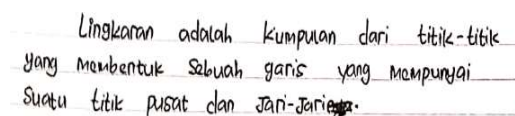 Lingkaran adalah kumpulan dari titik-titik
yang membentuk sebuah garis yang mempunyai
suatu titik pusat dan Jari-Jari.